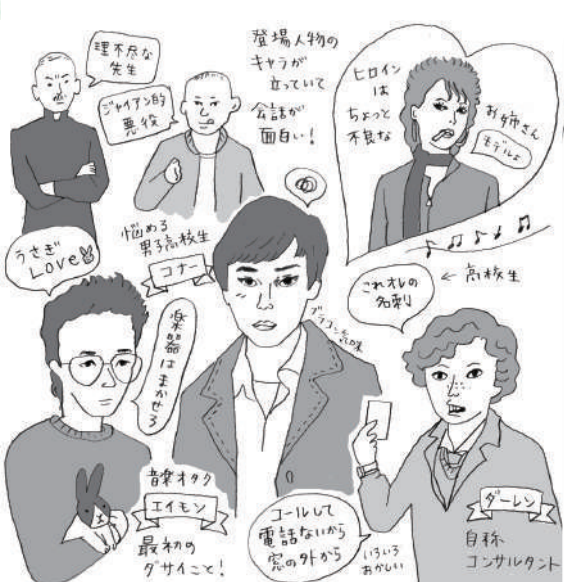 理不尽な
先生
ジャイアン的
悪役
登場人物の
キャラが
立っていて
会話が
面白い!
ヒロイン
は
ちょっと
不良な
お姉さん
モデルよ
うさぎ
LOVE
悩める
男子高校生
コナー
これオレの
名刺
← 高校生
楽器はまかせろ
ブラコン気味
音楽オタク
エイモン
最初の
ダサイこと!
コールして
電話ないから
窓の外から
いろいろ
おかしい
ダーレン
自称
コンサルタント